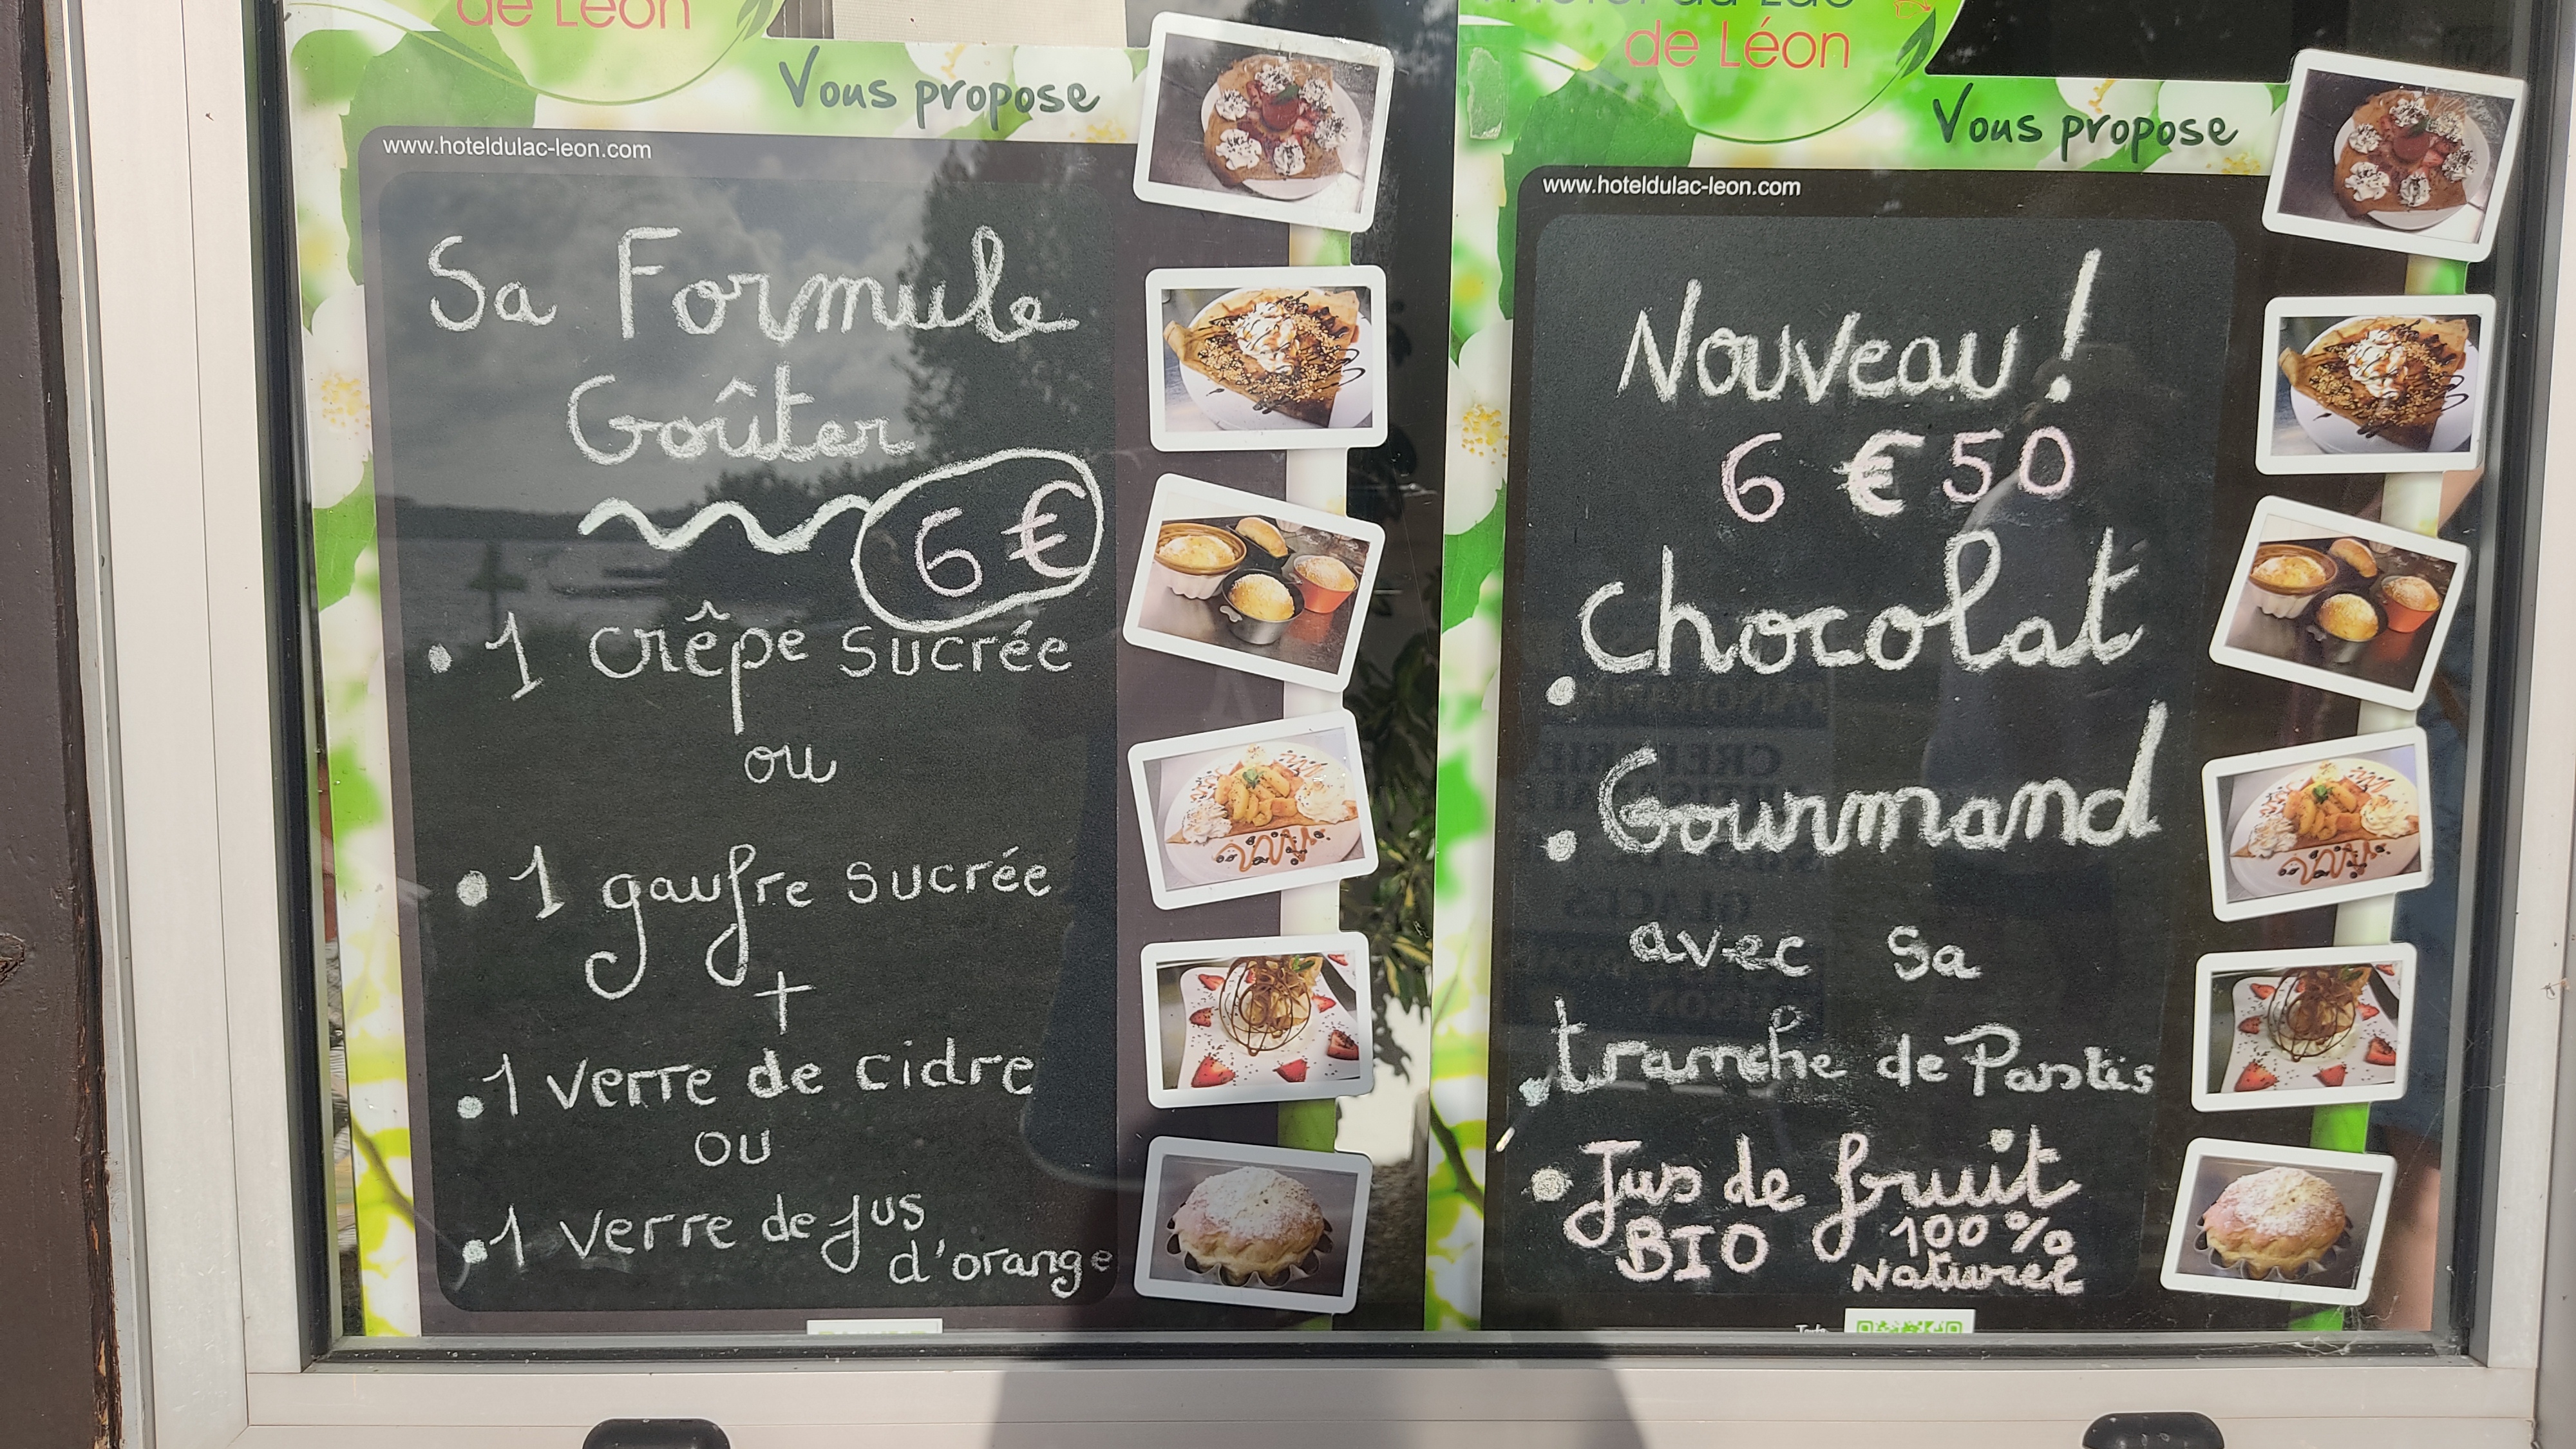 de Léon
Vous propose
www.hoteldulac-leon.com
Sa Formule
Goûter
6 €
• 1 crêpe sucrée
ou
• 1 gaufre sucrée
+
• 1 verre de cidre
ou
• 1 verre de jus
d'orange
de Léon
Vous propose
www.hoteldulac-leon.com
Nouveau !
6 € 50
• Chocolat
• Gourmand
avec sa
• tranche de Pastis
• Jus de fruit
BIO 100 %
Naturel